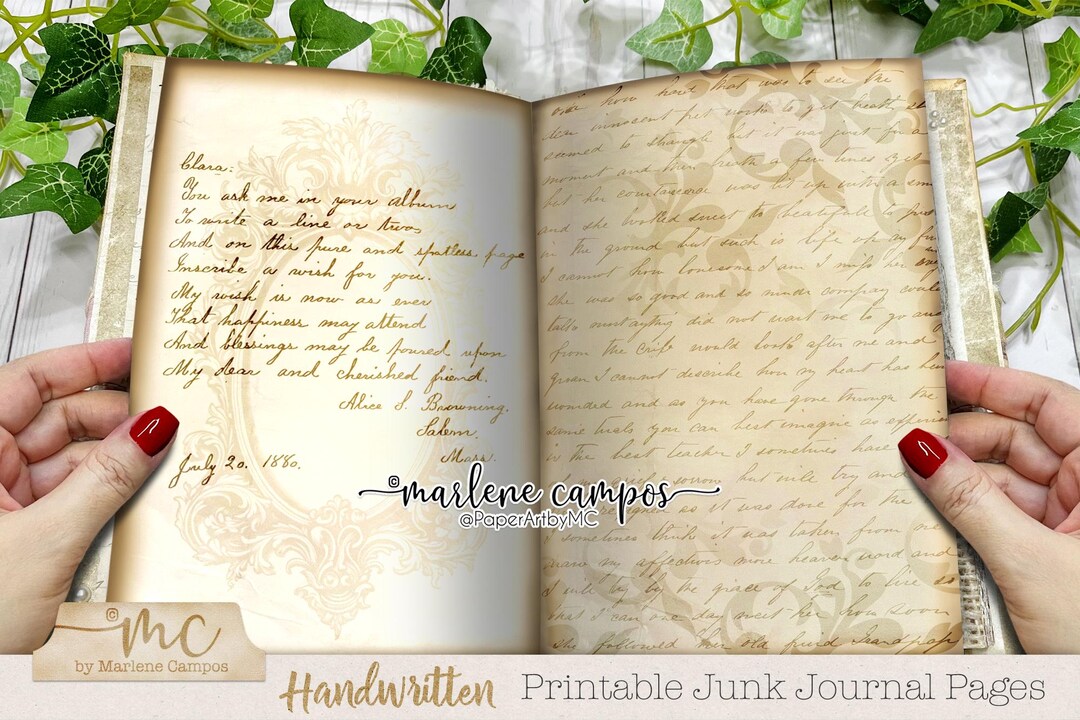 Clara:
You ask me in your album
To write a line or two
And on this pure and spotless page
Inscribe a wish for you.
My wish is now as ever
That happiness may attend
And blessings may be poured upon
My dear and cherished friend.
Alice S. Browning.
Salem.
Mass.
July 20. 1880.
how hard that was to see the
dear innocent pet work to get breath
seemed to strangle but it was just for a
moment and then breath a few times
but her countenance was lit up with a
and she looked sweet to beautifull to put
in the ground but such is life
I cannot how lonesome I am I miss her
she was so good and so much company could
talk most anything did not want me to go
from the crib would look after me and
I cannot describe how my heart has been
wounded and as you have gone through the
same trials you can best imagine as
is the best teacher I sometimes have
sorrow but will try and
so it was done for the
I sometimes think it was taken from me
draw my affections more heaven ward and
I will try by the grace of God to live so
that I can one day meet her how soon
she followed her old friend
© marlene campos
@PaperArtbyMC
© MC
by Marlene Campos
Handwritten Printable Junk Journal Pages